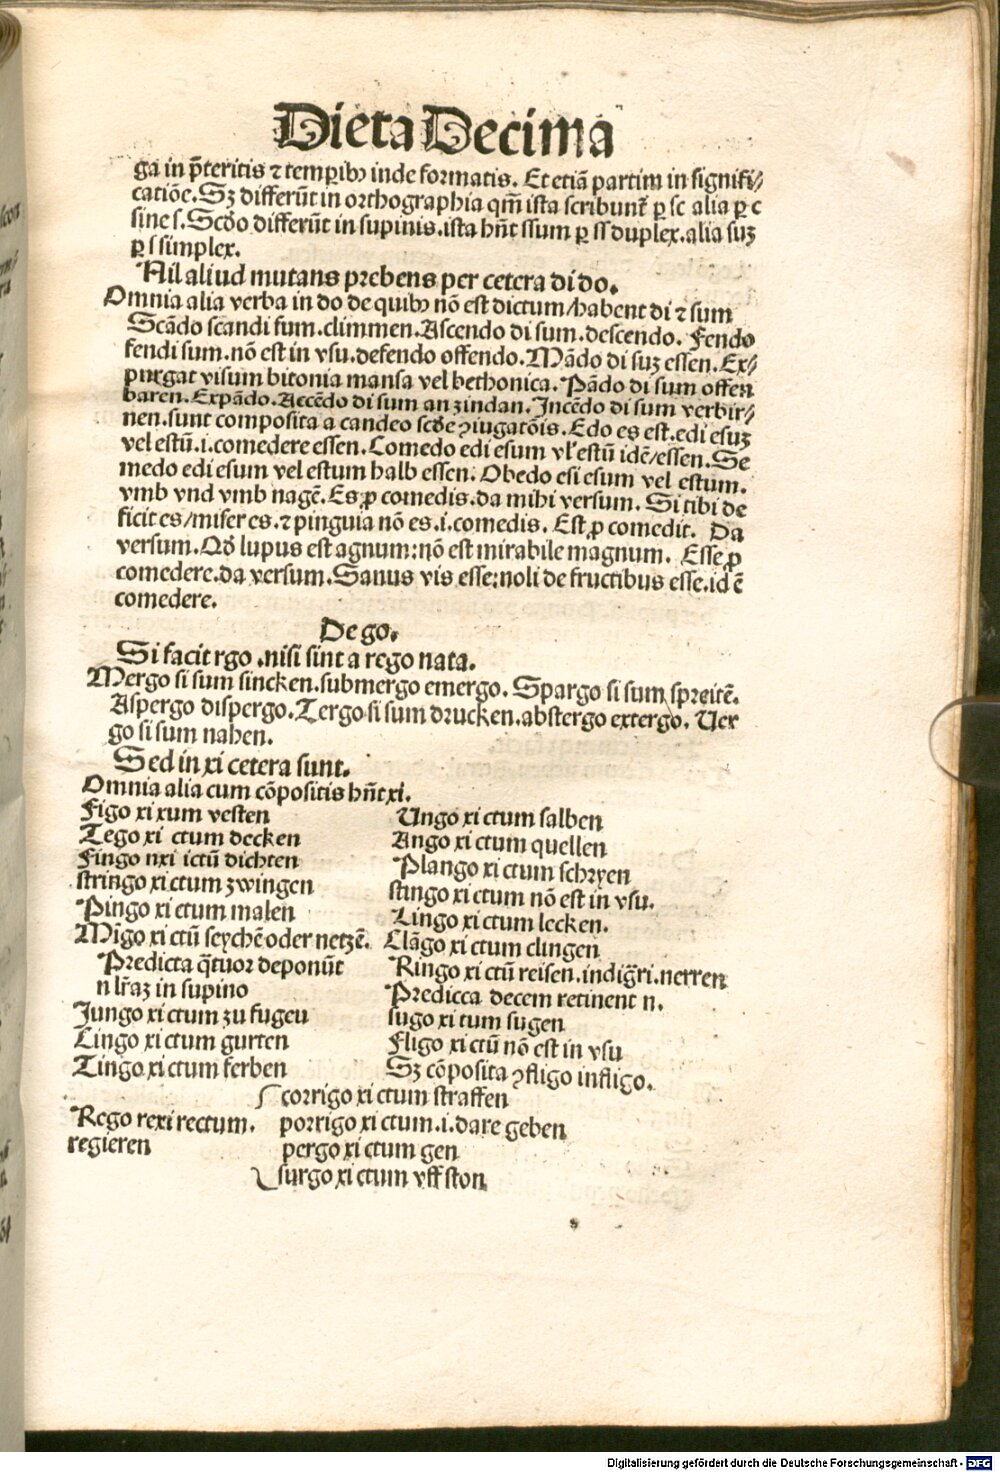 Dieta Decima
ga in p̄teritis ⁊ temꝑibꝰ inde formatis. Et etiā partim in signifi⸗
catiōe. Sꝫ differūt in orthographia qm̄ ista scribunt̄ ꝑ sc alia ꝑ c
sine s. Scd̄o differūt in supinis. ista hn̄t ssum ꝑ ss duplex. alia suꝫ
ꝑ s simplex.
Nil aliud mutans prebens per cetera di do.
Omnia alia verba in do de quibꝰ nō est dictum/habent di ⁊ sum
Scādo scandi sum. climmen. Ascendo di sum. descendo. Fendo
fendi sum. nō est in vsu. defendo offendo. Mādo di suꝫ essen. Ex⸗
purgat visum bitonia mansa vel bethonica. Pādo di sum offen
baren. Expādo. Accēdo di sum an zindan. Incēdo di sum verbir⸗
nen. sunt composita a candeo scd̄e ꝯiugatōis. Edo es est. edi esuꝫ
vel estū. i. comedere essen. Comedo edi esum vl̄ estū idē/essen. Se
medo edi esum vel estum halb essen. Obedo esi esum vel estum.
vmb vnd vmb nagē. Es ꝓ comedis. da mihi versum. Si tibi de
ficit es/miser es. ⁊ pinguia nō es. i. comedis. Est ꝓ comedit. Da
versum. Qd̄ lupus est agnum: nō est mirabile magnum. Esse ꝓ
comedere. da versum. Sanus vis esse: noli de fructibus esse. id ē
comedere.
De go.
Si facit rgo . nisi sint a rego nata.
Mergo si sum sincken. submergo emergo. Spargo si sum spreitē.
Aspergo dispergo. Tergo si sum drucken. abstergo extergo. Uer
go si sum nahen.
Sed in xi cetera sunt.
Omnia alia cum cōpositis hn̄t xi.
Figo xi xum vesten
Tego xi ctum decken
Fingo nxi ictū dichten
stringo xi ctum zwingen
Pingo xi ctum malen
Mīgo xi ctū seychē oder netzē.
Predicta q̄tuor deponūt
n lr̄aꝫ in supino
Jungo xi ctum zu fugeu
Cingo xi ctum gurten
Tingo xi ctum ferben
Ungo xi ctum salben
Ango xi ctum quellen
Plango xi ctum schryen
stingo xi ctum nō est in vsu.
Lingo xi ctum lecken.
Clāgo xi ctum clingen
Ringo xi ctū reisen. indigr̄i. nerren
Predicca decem retinent n.
sugo xi tum sugen
Fligo xi ctū nō est in vsu
Sꝫ cōposita ꝯfligo infligo.
Rego rexi rectum.
regieren
corrigo xi ctum straffen
porrigo xi ctum. i. dare geben
pergo xi ctum gen
surgo xi ctum vff ston
Digitalisierung gefördert durch die Deutsche Forschungsgemeinschaft - DFG